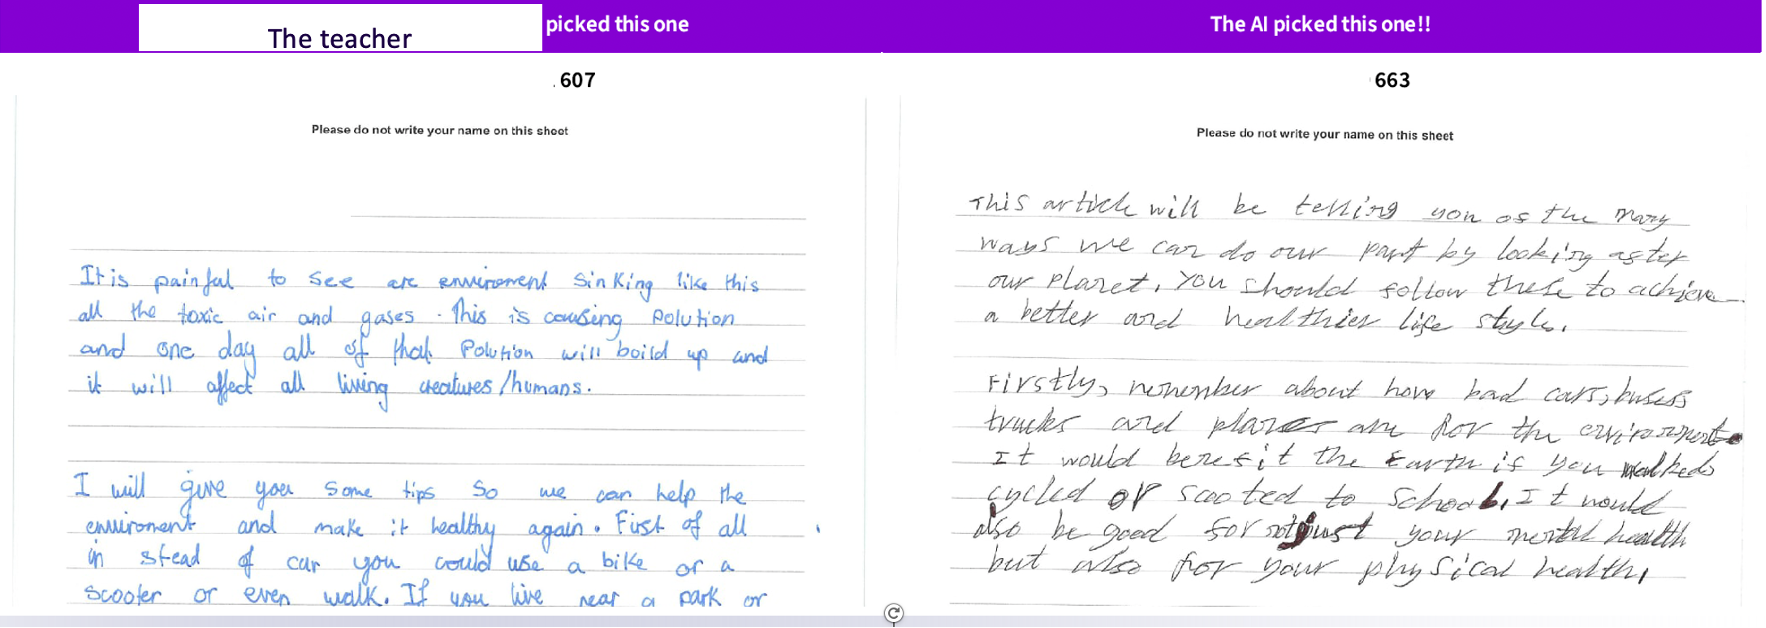 The teacher picked this one
607
Please do not write your name on this sheet
It is painful to see are enviroment sinking like this
all the toxic air and gases. This is causing Polution
and one day all of that Polution will boild up and
it will affect all living creatures/humans.
I will give you some tips so we can help the
enviroment and make it healthy again. First of all
in stead of car you could use a bike or a
scooter or even walk. If you live near a park or
The AI picked this one!!
663
Please do not write your name on this sheet
This article will be telling you of the many
ways we can do our part by looking after
our planet. You should follow these to achieve
a better and healthier life style.
Firstly, remember about how bad cars, buses
trucks and planes are for the environment
It would benefit the Earth if you walked
cycled or scooted to school. It would
also be good for not just your mental health
but also for your physical health,